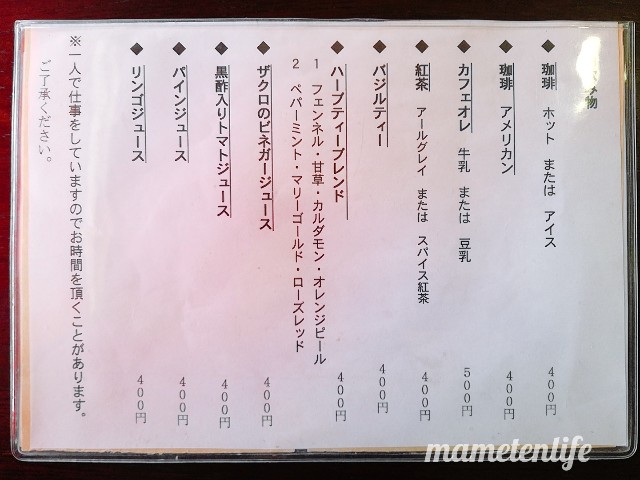 み物
◆ 珈琲 ホット または アイス 400円
◆ 珈琲 アメリカン 400円
◆ カフェオレ 牛乳 または 豆乳 500円
◆ 紅茶 アールグレイ または スパイス紅茶 400円
◆ バジルティー 400円
◆ ハーブティーブレンド 400円
1 フェンネル・甘草・カルダモン・オレンジピール
2 ペパーミント・マリーゴールド・ローズレッド
◆ ザクロのビネガージュース 400円
◆ 黒酢入りトマトジュース 400円
◆ パインジュース 400円
◆ リンゴジュース 400円
※一人で仕事をしていますのでお時間を頂くことがあります。
ご了承ください。
mametenlife